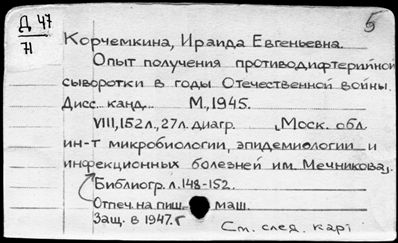 Д 47
71
5
Корчемкина, Ираида Евгеньевна.
Опыт получения противодифтерийной
сыворотки в годы Отечественной войны.
Дисс. канд. М., 1945.
VIII, 152 л., 27 л. диагр. (Моск. обл.
ин-т микробиологии, эпидемиологии и
инфекционных болезней им. Мечникова).
Библиогр. л. 148-152.
Отпеч. на пиш. маш.
Защ. в 1947.г
См. след. карт